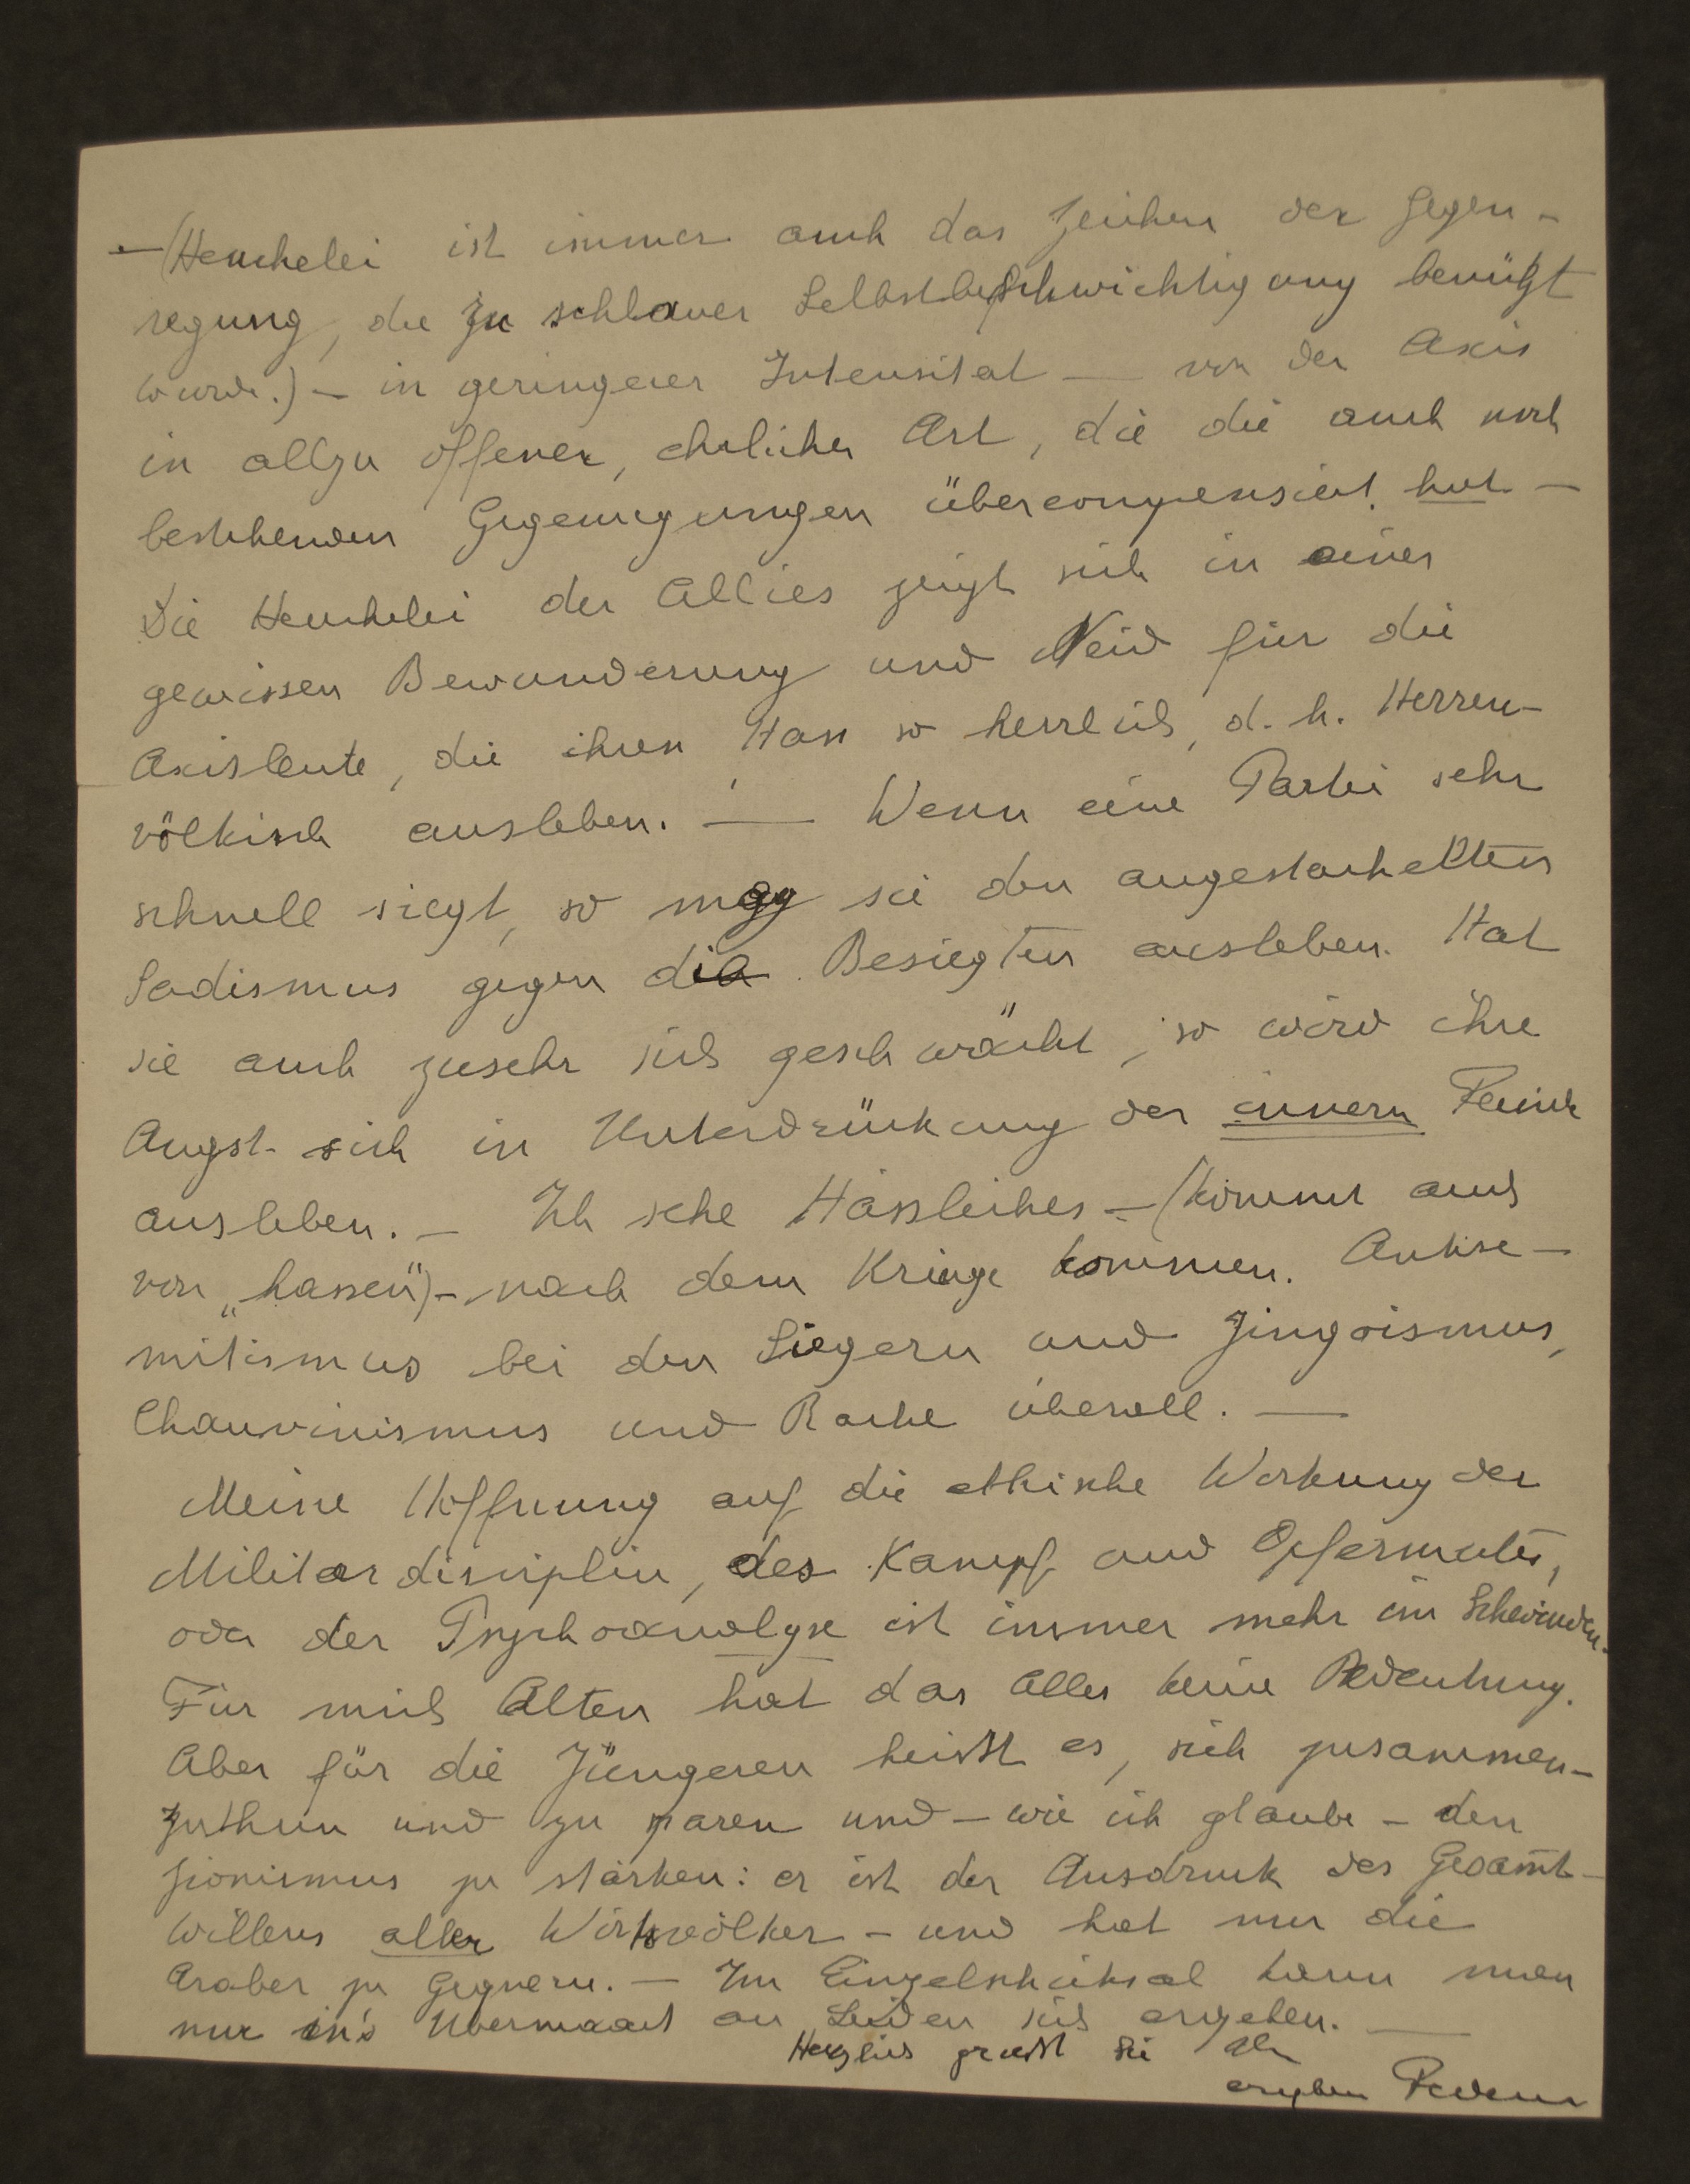 —(Heuchelei ist immer auch das Zeichen der Gegen-
regung, die zu schlauer Selbstbeschwichtigung benützt
wurde.) — in geringerer Intensität — von der Axis
in allzu offener, ehrlicher Art, die die auch noch
bestehenden Gegenregungen übercompensiert hat —
Die Heuchelei der Allies zeigt sich in einer
gewissen Bewunderung und Neid für die
Axisleute, die ihren Hass so herrlich, d. h. Herren-
völkisch ausleben. — Wenn eine Partei sehr
schnell siegt, so mag sie den angestachelten
Sadismus gegen die Besiegten ausleben. Hat
sie auch zusehr sich geschwächt, so wird ihre
Angst sich in Unterdrückung der innern Feinde
ausleben. — Ich sehe Hässliches — (kommt auch
von „hassen") — nach dem Kriege kommen. Antise-
mitismus bei den Siegern und Jingoismus,
Chauvinismus und Rache überall. —
Meine Hoffnung auf die ethische Wirkung der
Militärdisciplin, des Kampf und Opfermutes,
oder der Psychoanalyse ist immer mehr im Schwinden.
Für mich Alten hat das Alles keine Bedeutung.
Aber für die Jüngeren heisst es, sich zusammen-
zuthun und zu paaren und — wie ich glaube — den
Zionismus zu stärken: er ist der Ausdruck des Gesamt-
willens aller Wirtsvölker — und hat nur die
Araber zu Gegnern. — Im Einzelschicksal kann man
nur in's Übermaass an Leiden sich ergeben. —
Herzlich grüsst Sie Ihr
ergeben Federn